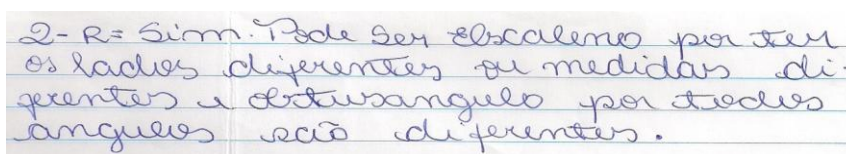 2- R= Sim. Pode ser Escaleno por ter
os lados diferentes ou medidas di-
ferentes e obtusangulo por todos
angulos são diferentes.